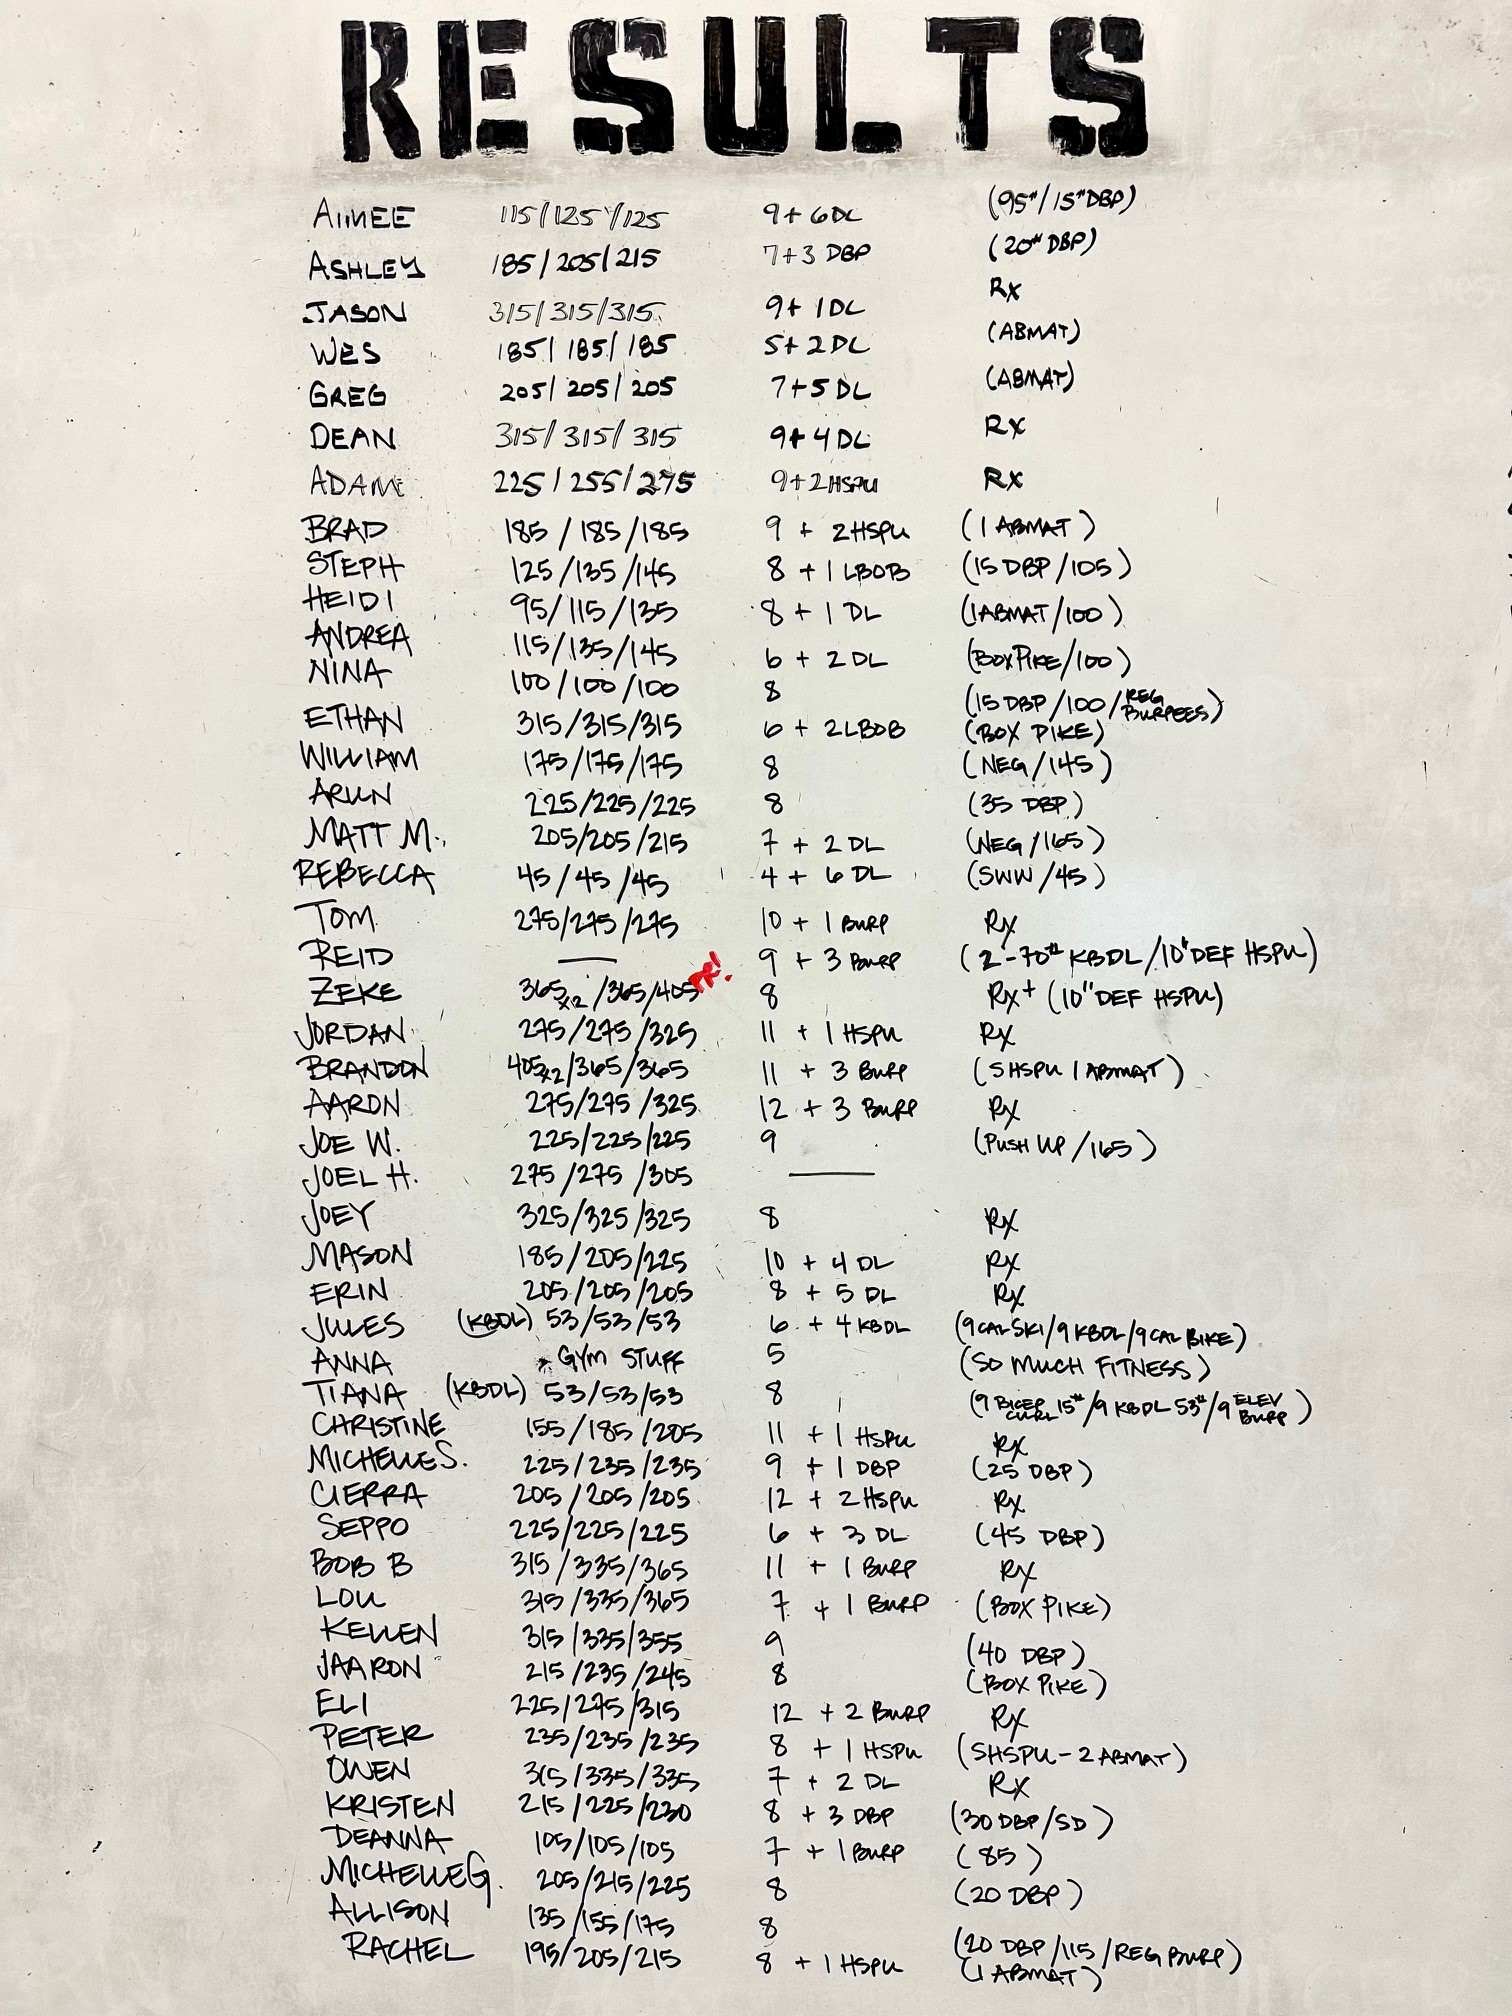 RESULTS
AIMEE 115/125/125 9+6DL (95#/15#DBP)
ASHLEY 185/205/215 7+3 DBP (20# DBP)
JASON 315/315/315 9+ 1DL Rx
WES 185/185/185 5+2DL (ABMAT)
GREG 205/205/205 7+5DL (ABMAT)
DEAN 315/315/315 9+4DL Rx
ADAM 225/255/275 9+2HSPU Rx
BRAD 185/185/185 9 + 2HSPU (1 ABMAT)
STEPH 125/135/145 8 + 1 LBOB (15 DBP/105)
HEIDI 95/115/135 8 + 1 DL (1ABMAT/100)
ANDREA 115/135/145 6 + 2DL (BOX PIKE/100)
NINA 100/100/100 8 (15 DBP/100/REG BURPEES)
ETHAN 315/315/315 6 + 2LBOB (BOX PIKE)
WILLIAM 175/175/175 8 (NEG/145)
ARUN 225/225/225 8 (35 DBP)
MATT M. 205/205/215 7 + 2 DL (NEG/165)
REBECCA 45/45/45 4 + 6 DL (SWW/45)
TOM 275/275/275 10 + 1 BURP Rx
REID — 9 + 3 BURP (2-70# KBDL/10" DEF HSPU)
ZEKE 365x2/365/405 PR! 8 Rx+ (10" DEF HSPU)
JORDAN 275/275/325 11 + 1 HSPU Rx
BRANDON 405x2/365/365 11 + 3 BURP (SHSPU 1 ABMAT)
AARON 275/275/325 12 + 3 BURP Rx
JOE W. 225/225/225 9 (PUSH UP/165)
JOEL H. 275/275/305 —
JOEY 325/325/325 8 Rx
MASON 185/205/225 10 + 4 DL Rx
ERIN 205/205/205 8 + 5 DL Rx
JULES (KBDL) 53/53/53 6 + 4 KBDL (9CAL SKI/9 KBDL/9CAL BIKE)
ANNA * GYM STUFF 5 (SO MUCH FITNESS)
TIANA (KBDL) 53/53/53 8 (9 BICEP CURL 15#/9 KBDL 53#/9 ELEV BURP)
CHRISTINE 155/185/205 11 + 1 HSPU Rx
MICHELLE S. 225/235/235 9 + 1 DBP (25 DBP)
CIERRA 205/205/205 12 + 2 HSPU Rx
SEPPO 225/225/225 6 + 3 DL (45 DBP)
BOB B 315/335/365 11 + 1 BURP Rx
LOU 315/335/365 7 + 1 BURP (BOX PIKE)
KELLEN 315/335/355 9 (40 DBP)
JAARON 215/235/245 8 (BOX PIKE)
ELI 225/275/315 12 + 2 BURP Rx
PETER 235/235/235 8 + 1 HSPU (SHSPU - 2 ABMAT)
OWEN 315/335/335 7 + 2 DL Rx
KRISTEN 215/225/230 8 + 3 DBP (30 DBP/SD)
DEANNA 105/105/105 7 + 1 BURP (85)
MICHELLE G. 205/215/225 8 (20 DBP)
ALLISON 135/155/175 8 (20 DBP/115/REG BURP)
RACHEL 195/205/215 8 + 1 HSPU (1 ABMAT)